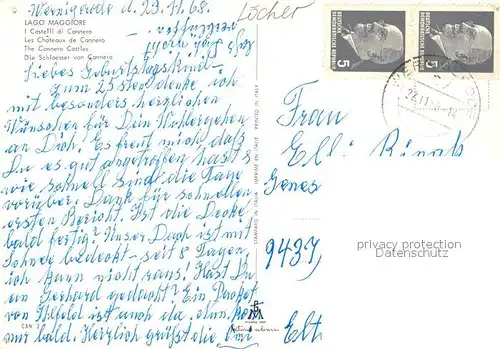 Wernigerode d. 23.11.68.
Löcher
LAGO MAGGIORE
I Castelli di Cannero
Les Châteaux de Cannero
The Cannero Castles
Die Schloesser von Cannero
Liebes Geburtstagskind –
Zum 25sten denke ich
mit besonders herzlichen
Wünschen für Dein Wohlergehen
an Dich! Es freut mich daß
Du es gut angetroffen hast &
wie schnell sind die Tage
vorüber. Dank für schnellen
ersten Bericht. Ist die Decke
bald fertig? Unser Dach ist mit
Schnee bedeckt – seit 8 Tagen.
ich kann nicht raus! Hast Du
an Gerhard gedacht? Ein
von Ilsfeld ist auch da.
mir bald. Herzlich grüßt die
CAN 3
STAMPATO IN ITALIA IMPRIMÉ EN ITALIE PRINTED IN ITALY
DEUTSCHE DEMOKRATISCHE REPUBLIK
5
DEUTSCHE DEMOKRATISCHE REPUBLIK
5
Frau
9437
privacy protection
Datenschutz